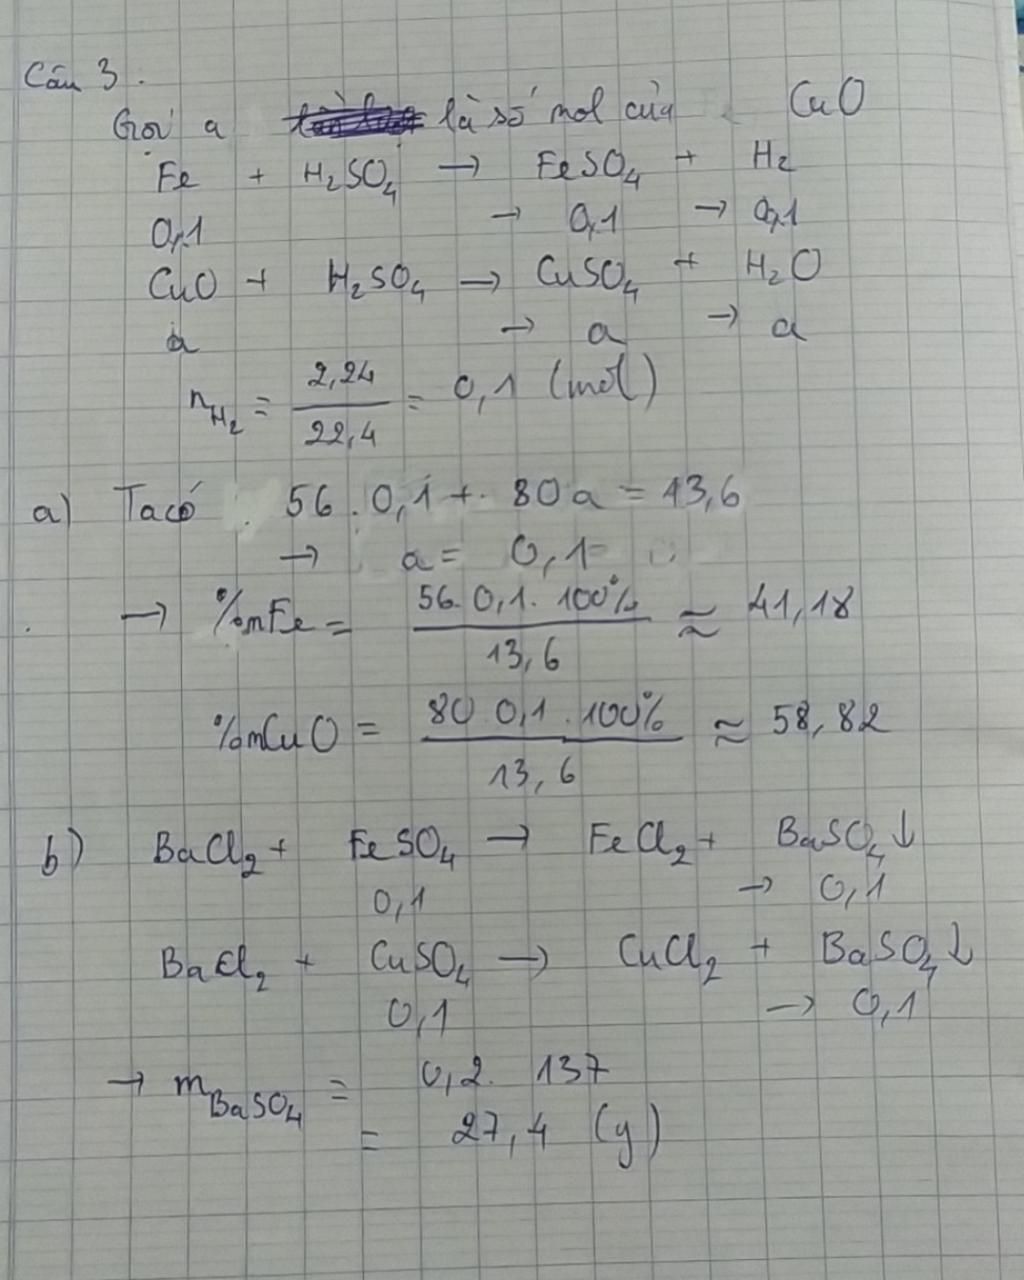 Câu 3.
Gọi a là số mol của CuO
Fe + H₂SO₄ → FeSO₄ + H₂
0,1 → 0,1 → 0,1
CuO + H₂SO₄ → CuSO₄ + H₂O
a → a → a
n_H₂ = 2,24 / 22,4 = 0,1 (mol)
a) Ta có 56 . 0,1 + 80a = 13,6
→ a = 0,1
→ %mFe = 56. 0,1. 100% / 13,6 ≈ 41,18
%mCuO = 80 0,1 . 100% / 13,6 ≈ 58,82
b) BaCl₂ + FeSO₄ → FeCl₂ + BaSO₄↓
0,1 → 0,1
BaCl₂ + CuSO₄ → CuCl₂ + BaSO₄↓
0,1 → 0,1
→ m_BaSO₄ = 0,2. 137
= 27,4 (g)